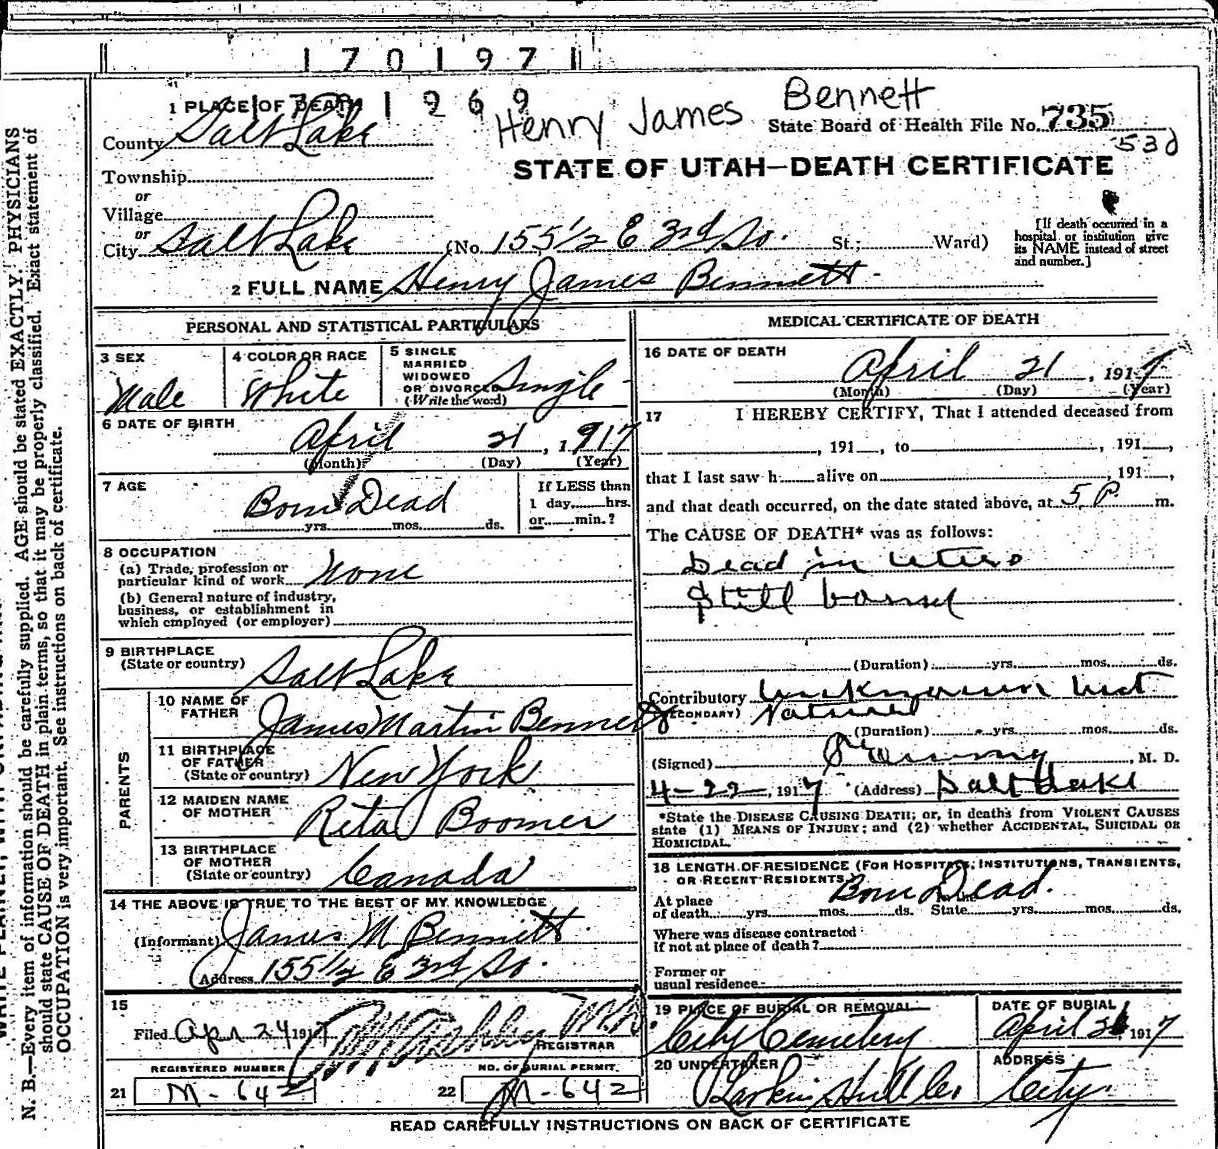 1701971
1 PLACE OF DEATH 1701969
Henry James Bennett
County Salt Lake
State Board of Health File No. 735
530
Township
STATE OF UTAH—DEATH CERTIFICATE
or
Village
or
City Salt Lake (No. 155½ E 3rd So. St.; Ward)
[If death occurred in a
hospital or institution give
its NAME instead of street
and number.]
2 FULL NAME Henry James Bennett
PERSONAL AND STATISTICAL PARTICULARS
3 SEX
Male
4 COLOR OR RACE
White
5 SINGLE
MARRIED
WIDOWED
OR DIVORCED
(Write the word) Single
6 DATE OF BIRTH
April 21, 1917
(Month) (Day) (Year)
7 AGE
Born Dead
yrs. mos. ds.
If LESS than
1 day, hrs.
or min.?
8 OCCUPATION
(a) Trade, profession or
particular kind of work None
(b) General nature of industry,
business, or establishment in
which employed (or employer)
9 BIRTHPLACE
(State or country)
Salt Lake
PARENTS
10 NAME OF
FATHER
James Martin Bennett
11 BIRTHPLACE
OF FATHER
(State or country) New York
12 MAIDEN NAME
OF MOTHER
Rita Boomer
13 BIRTHPLACE
OF MOTHER
(State or country) Canada
14 THE ABOVE IS TRUE TO THE BEST OF MY KNOWLEDGE
(Informant) James M Bennett
Address 155½ E 3rd So.
15
Filed Apr 24 1917
REGISTRAR
REGISTERED NUMBER
21 M-642
NO. OF BURIAL PERMIT
22 M-642
MEDICAL CERTIFICATE OF DEATH
16 DATE OF DEATH
April 21, 1917
(Month) (Day) (Year)
17 I HEREBY CERTIFY, That I attended deceased from
, 191 , to , 191 ,
that I last saw h alive on , 191 ,
and that death occurred, on the date stated above, at 5 P. m.
The CAUSE OF DEATH* was as follows:
Dead in utero
Still borned
(Duration) yrs. mos. ds.
Contributory Unknown but
(SECONDARY) Natural
(Duration) yrs. mos. ds.
(Signed) , M. D.
4-22, 1917 (Address) Salt Lake
*State the DISEASE CAUSING DEATH; or, in deaths from VIOLENT CAUSES
state (1) MEANS OF INJURY; and (2) whether ACCIDENTAL, SUICIDAL OR
HOMICIDAL.
18 LENGTH OF RESIDENCE (FOR HOSPITALS, INSTITUTIONS, TRANSIENTS,
OR RECENT RESIDENTS) Born Dead.
At place In the
of death yrs. mos. ds. State yrs. mos. ds.
Where was disease contracted
if not at place of death?
Former or
usual residence
19 PLACE OF BURIAL OR REMOVAL
City Cemetery
DATE OF BURIAL
April 26 1917
20 UNDERTAKER
Larkin Hull Co
ADDRESS
City
READ CAREFULLY INSTRUCTIONS ON BACK OF CERTIFICATE
N. B.—Every item of information should be carefully supplied. AGE should be stated EXACTLY. PHYSICIANS
should state CAUSE OF DEATH in plain terms, so that it may be properly classified. Exact statement of
OCCUPATION is very important. See instructions on back of certificate.